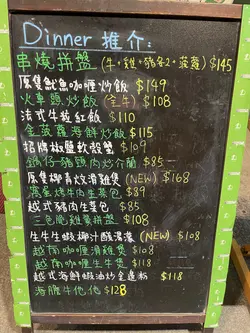 Dinner 推介:
串燒拼盤(牛,雞,豬各2+菠蘿) $145
原隻魷魚咖喱炒飯 $149
火車頭炒飯(全牛) $108
法式牛尾紅飯 $110
金菠蘿海鮮炒飯 $115
招牌椒鹽軟殼蟹 $109
豬頸肉炒介蘭 $85
原隻椰青炆滑雞(NEW) $168
烤牛肉生菜包 $89
越式豬肉生菜包 $85
三色脆雞翼拼盤 $108
生牛生蝦椰汁酸湯瀨(NEW) $108
越南咖喱滑雞煲 $108
越南咖喱生牛煲 $118
越式海鮮蝦油炒金邊粉 $118
海膽牛他他 $128